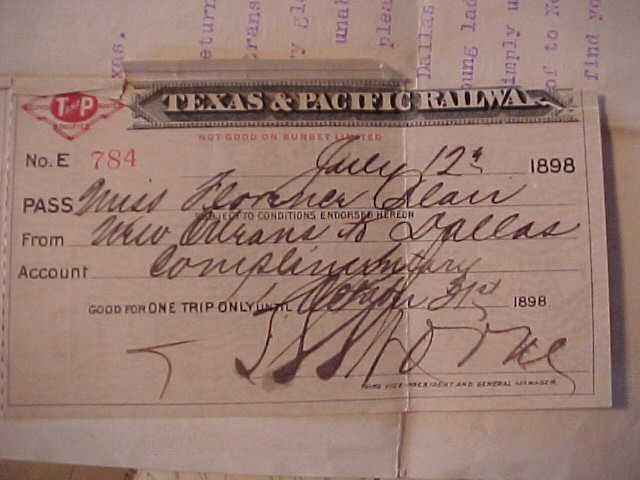 xas.
eturn
trans
y gla
unab
pleas
Dallas
oung lad
imply u
or to Ne
find yo
T AND P
TEXAS & PACIFIC RAILWA
NOT GOOD ON SUNSET LIMITED
No. E 784 July 12th 1898
PASS Miss Florence
SUBJECT TO CONDITIONS ENDORSED HEREON
From New Orleans to Dallas
Account Complimentary
GOOD FOR ONE TRIP ONLY UNTIL 31st 1898
VICE-PRESIDENT AND GENERAL MANAGER